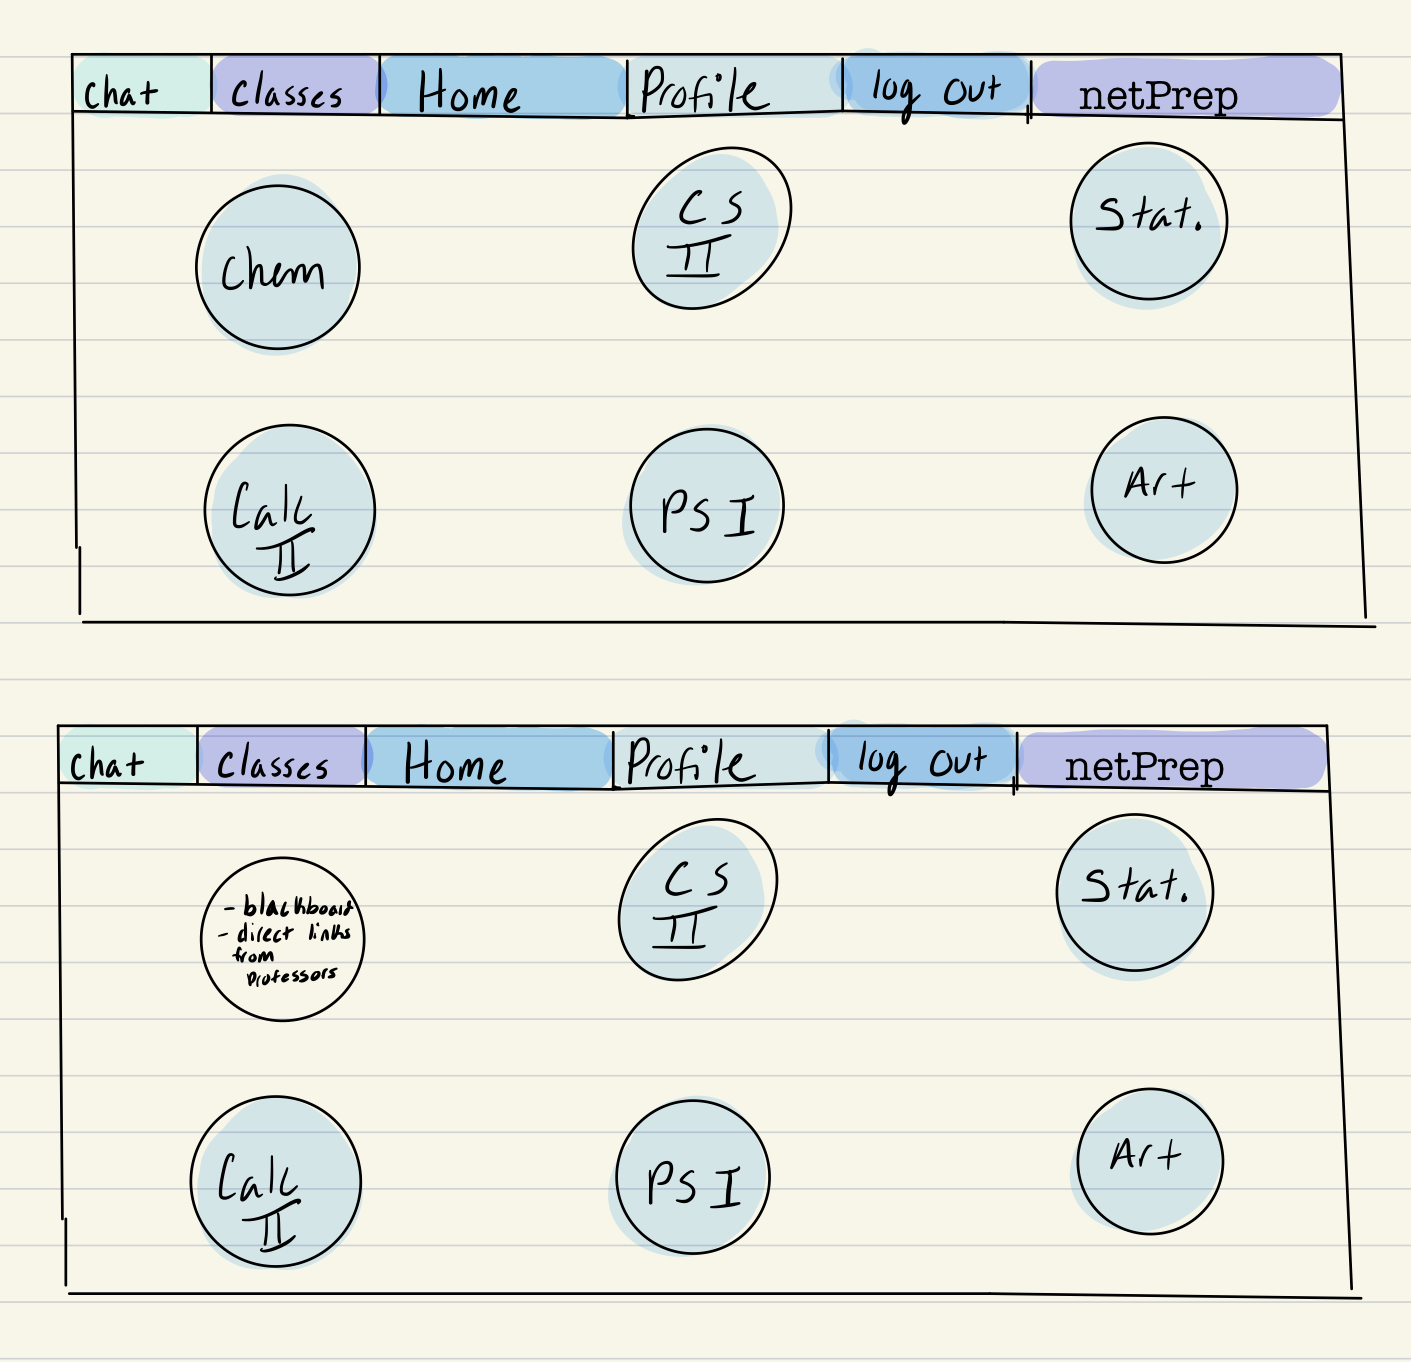 chat classes Home Profile log out netPrep
Chem
CS
II
Stat.
Calc
II
PS I
Art
chat classes Home Profile log out netPrep
- blackboard
- direct links
from
professors
CS
II
Stat.
Calc
II
PS I
Art